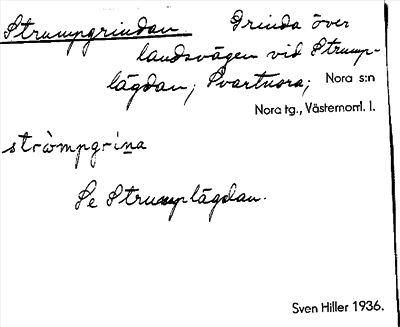 Strumpgrindan. Grinda över
landsvägen vid Strump-
lägdan; Svartnora; Nora s:n
Nora tg., Västernorrl. l.
stròmpgrina
Se Strumplägdan.
Sven Hiller 1936.